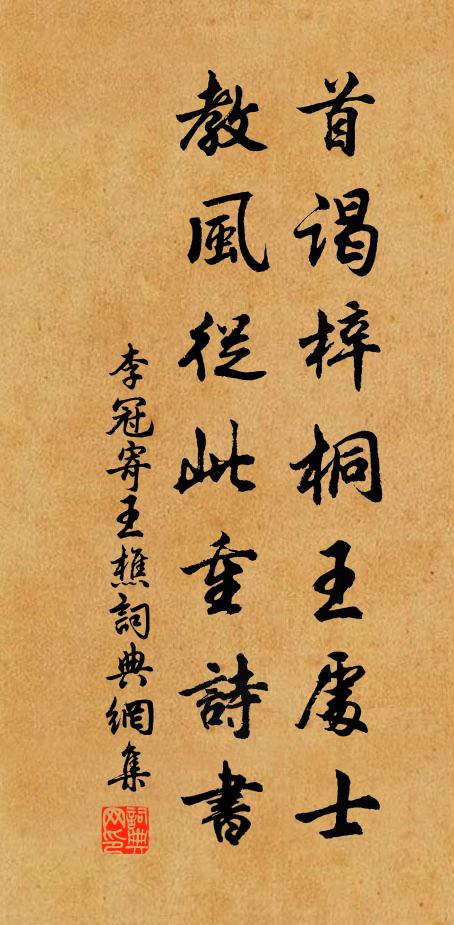 首謁梓桐王處士
教風從此重詩書
李冠寄王樵詞典網集
詞典网印